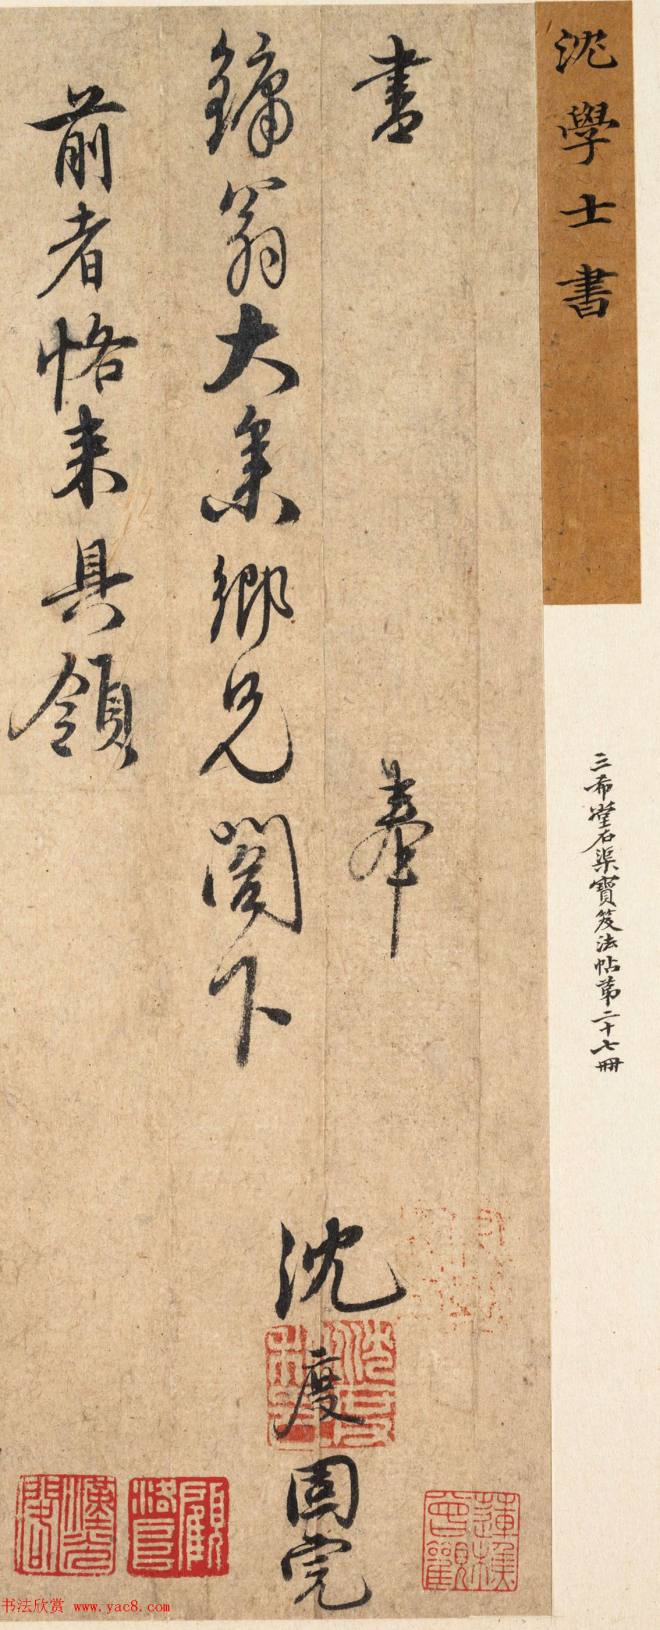 沈學士書
三希堂石渠寶笈法帖第二十七冊
書 奉
鏞翁大參鄉兄閣下
沈度
固完
前者恪來具領
顧
蓮樵曾觀
书法欣赏 www.yac8.com